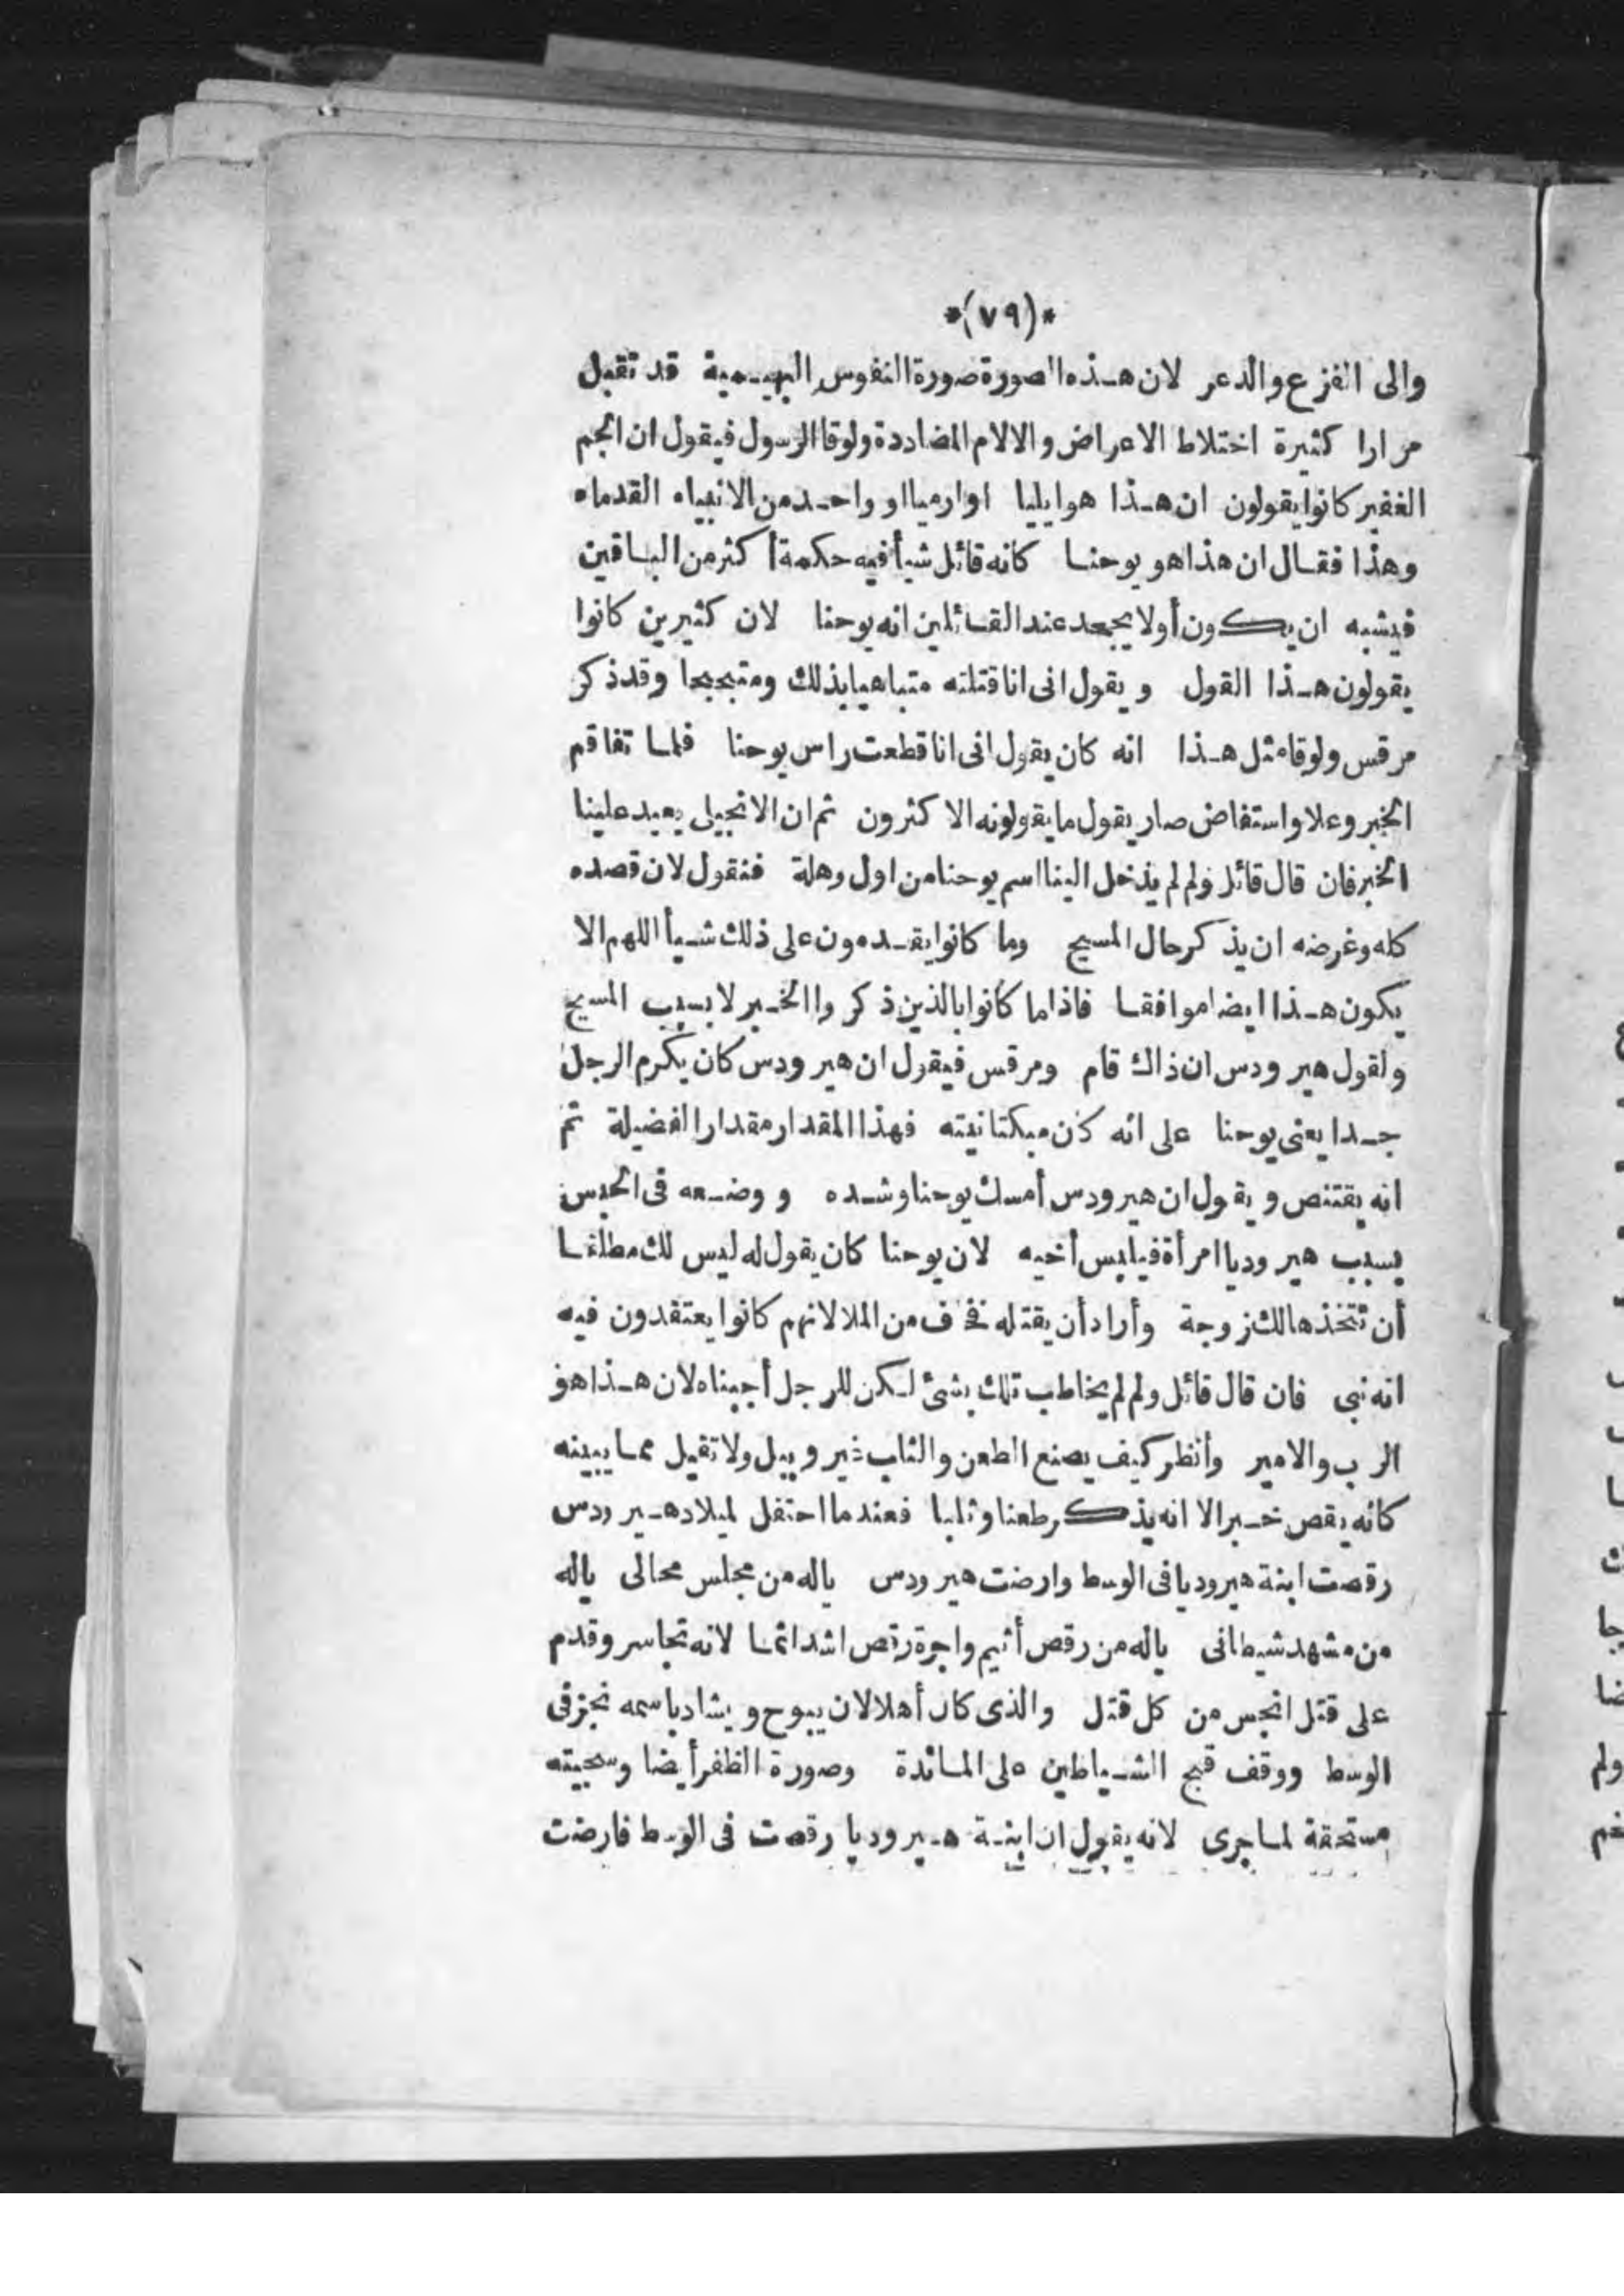 *(٧٩)*
والى الفزع والدعر لان هذه الصورة صورة النفوس البهيمية قد تقبل
مرارا كثيرة اختلاط الاعراض والالام المضاددة ولوقا الرسول فيقول ان الجم
الغفير كانوا يقولون ان هذا هو ايليا او ارميا او واحد من الانبياء القدماء
وهذا فقال ان هذا هو يوحنا كانه قائل شيأ فيه حكمة أكثر من الباقين
فيشبه ان يكون أولا يجحد عند القائلين انه يوحنا لان كثيرين كانوا
يقولون هذا القول ويقول انى انا قتلته متباهيا بذلك ومتبجحا وقد ذكر
مرقس ولوقا مثل هذا انه كان يقول انى انا قطعت راس يوحنا فلما تفاقم
الخبر وعلا واستفاض صار يقول ما يقولونه الاكثرون ثم ان الانجيلى يعيد علينا
الخبر فان قال قائل ولم لم يدخل الينا اسم يوحنا من اول وهلة فنقول لان قصده
كله وغرضه ان يذكر حال المسيح وما كانوا يقدمون على ذلك شيأ اللهم الا
يكون هذا ايضا موافقا فاذا ما كانوا بالذين ذكروا الخبر لا بسبب المسيح
ولقول هيرودس ان ذاك قام ومرقس فيقول ان هيرودس كان يكرم الرجل
جدا يعنى يوحنا على انه كان مبكتا نيته فهذا المقدار مقدار الفضيلة ثم
انه يقتنص ويقول ان هيرودس أمسك يوحنا وشده ووضعه فى الحبس
بسبب هيروديا امرأة فيلبس أخيه لان يوحنا كان يقول له ليس لك مطلقا
أن تتخذها لك زوجة وأراد أن يقتله فخاف من الملا لانهم كانوا يعتقدون فيه
انه نبى فان قال قائل ولم لم يخاطب تلك بشئ لكن للرجل أجبناه لان هذا هو
الرب والامير وأنظر كيف يصنع الطعن والثلب غير وبيل ولا تقيل مما يبينه
كأنه يقص خبرا لا انه يذكر طعنا وثلبا فعندما احتفل لميلاد هيرودس
رقصت ابنة هيروديا فى الوسط وارضت هيرودس ياله من مجلس محالى ياله
من مشهد شيطانى ياله من رقص أثيم واجرة رقص اشد اثما لانه تجاسر وقدم
على قتل انجس من كل قتل والذى كان أهلا لان يبوح ويشاد باسمه نجز فى
الوسط ووقف قبح الشياطين على المائدة وصورة الظفر أيضا وسجيته
مستحقة لما جرى لانه يقول ان ابنة هيروديا رقصت فى الوسط فارضت